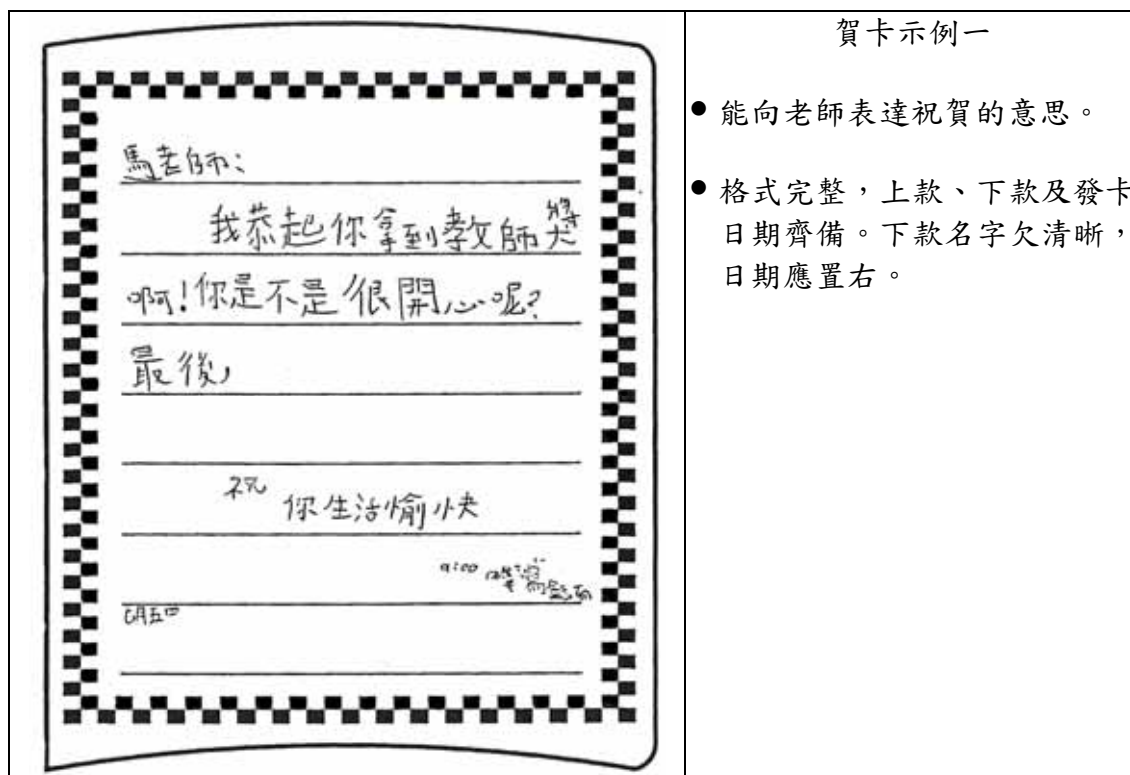 馬老師:
我恭起你拿到教師獎
啊!你是不是很開心呢?
最後,
祝
你生活愉快
9:00
六月五日
賀卡示例一
● 能向老師表達祝賀的意思。
● 格式完整,上款、下款及發卡
日期齊備。下款名字欠清晰,
日期應置右。